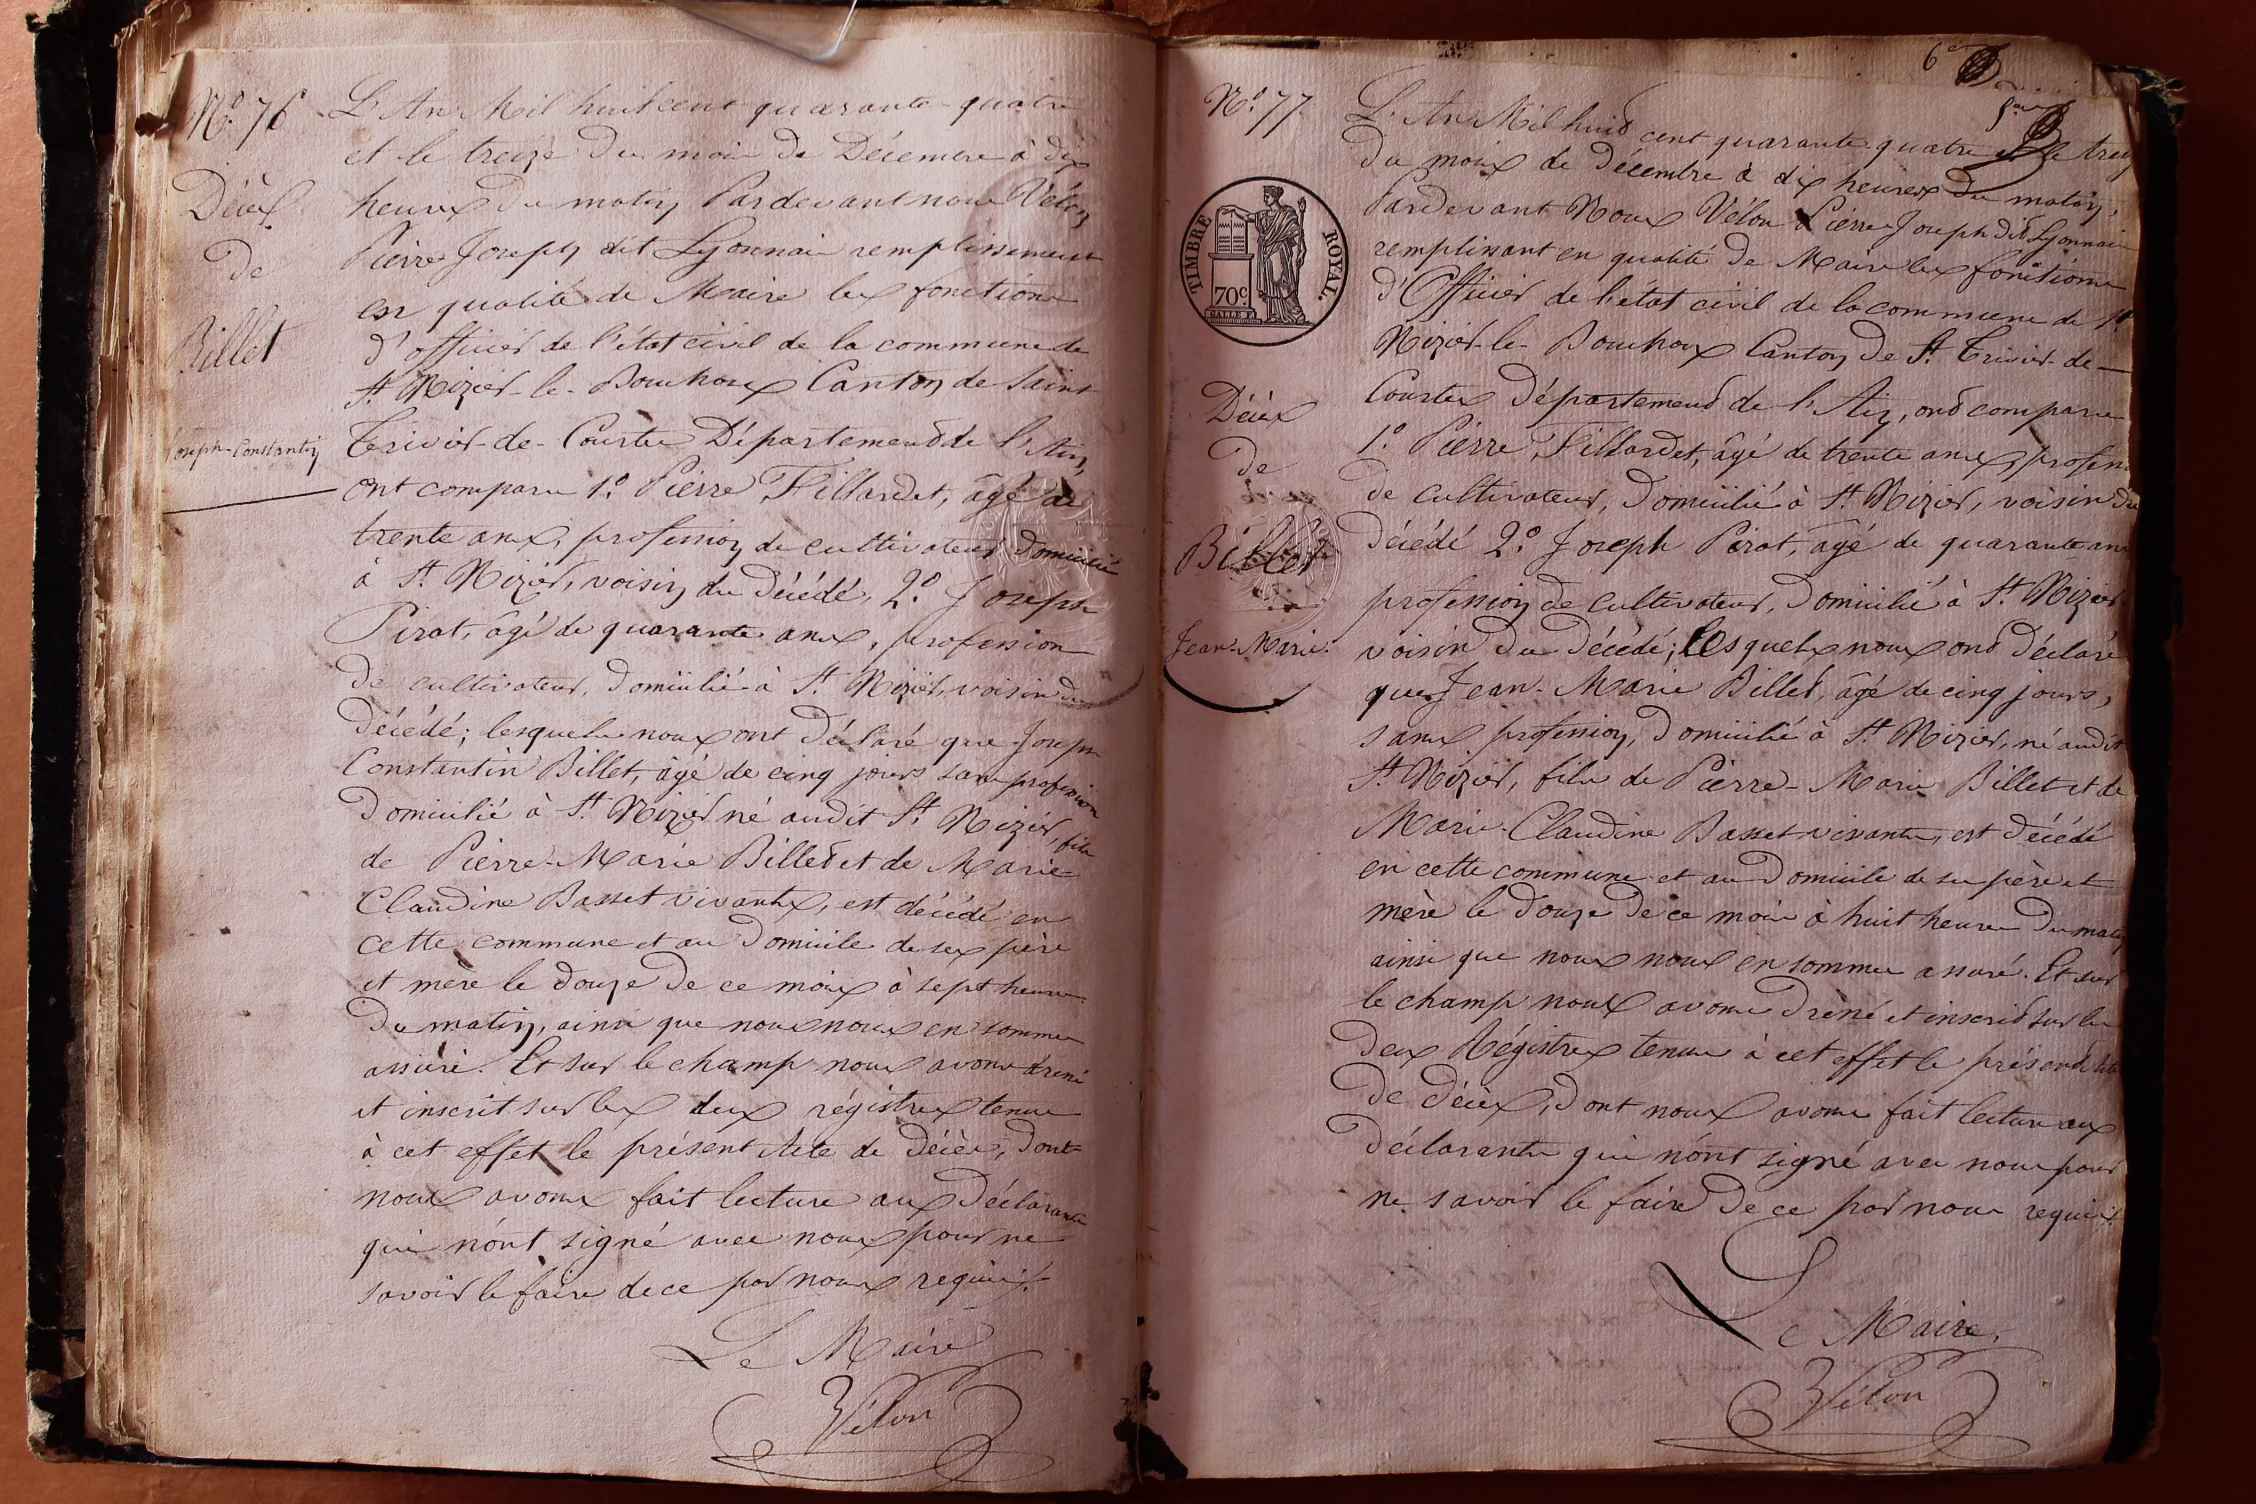 N.° 76
Décès
de
Billet
Joseph-Constantin
L'An Mil huit cent quarante quatre
et le treize du mois de Décembre à dix
heures du matin Pardevant nous Vélon
Pierre Joseph dit Lyonnais remplissement
en qualité de Maire les fonctions
d'officier de l'état civil de la commune de
St Nizier-le-Bouchoux Canton de Saint
Trivier-de-Courtes Département de l'Ain,
ont comparu 1.° Pierre Fillardet, âgé de
trente ans, profession de cultivateur domicilié
à St Nizier, voisin du décédé, 2.° Joseph
Pirat, âgé de quarante ans, profession
de cultivateur, domicilié à St Nizier, voisin du
décédé; lesquels nous ont déclaré que Joseph
Constantin Billet, âgé de cinq jours sans profession
domicilié à St Nizier né audit St Nizier, fils
de Pierre-Marie Billet et de Marie
Claudine Basset vivants, est décédé en
cette commune et au domicile de ses père
et mère le douze de ce mois à sept heures
du matin, ainsi que nous nous en sommes
assuré. Et sur le champ nous avons drené
et inscrit sur les deux régistres tenus
à cet effet le présent Acte de décès, dont
nous avons fait lecture aux déclarants
qui n'ont signé avec nous pour ne
savoir le faire de ce par nous requis.
Le Maire
Vélon
6e
N.° 77
TIMBRE ROYAL.
70c.
Décès
de
Billet
Jean-Marie.
L'An Mil huit cent quarante quatre et le treize
du mois de décembre à dix heures du matin,
Pardevant Nous Vélon Pierre Joseph dit Lyonnais
remplissant en qualité de Maire les fonctions
d'Officier de l'état civil de la commune de St
Nizier-le-Bouchoux Canton de St Trivier-de-
Courtes Département de l'Ain, ont comparu
1.° Pierre Fillardet, âgé de trente ans, profession
de cultivateur, domicilié à St Nizier, voisin du
décédé 2.° Joseph Pirat, âgé de quarante ans
profession de cultivateur, domicilié à St Nizier
voisin du décédé; lesquels nous ont déclaré
que Jean-Marie Billet, âgé de cinq jours,
sans profession, domicilié à St Nizier, né audit
St Nizier, fils de Pierre-Marie Billet et de
Marie-Claudine Basset vivants, est décédé
en cette commune et au domicile de ses père et
mère le douze de ce mois à huit heures du matin
ainsi que nous nous en sommes assuré. Et sur
le champ nous avons drené et inscrit sur les
deux Régistres tenus à cet effet le présent Acte
de décès, dont nous avons fait lecture aux
déclarants qui n'ont signé avec nous pour
ne savoir le faire de ce par nous requis.
Le Maire,
Vélon